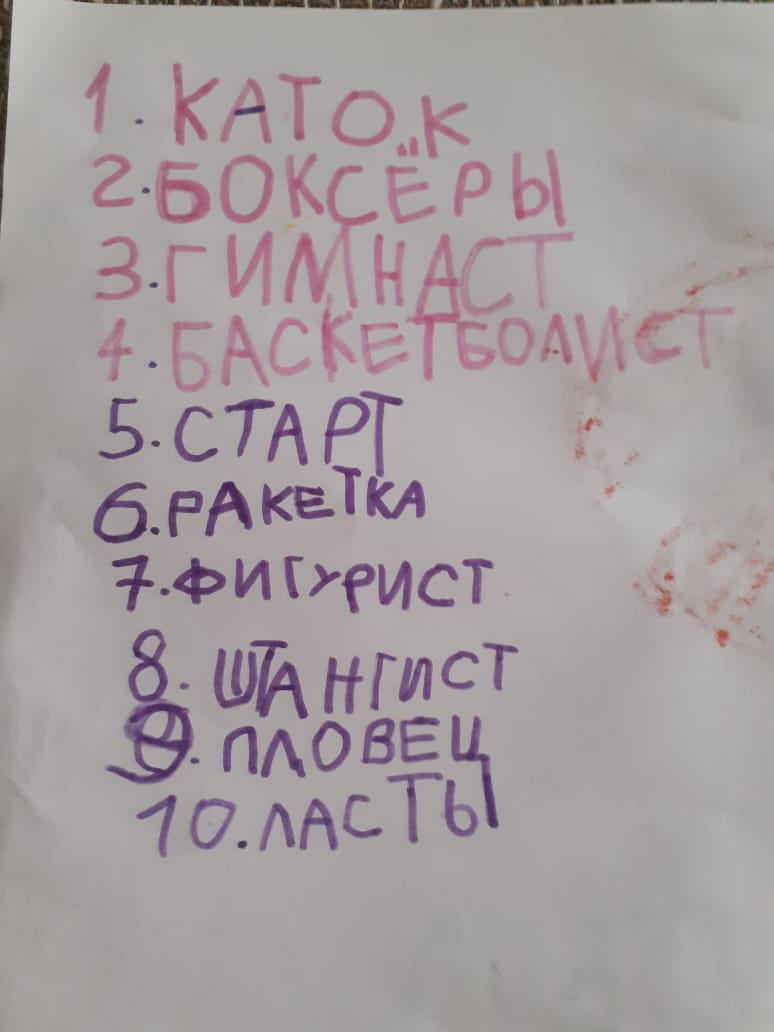 1. КАТОК
2. БОКСЁРЫ
3. ГИМНАСТ
4. БАСКЕТБОЛИСТ
5. СТАРТ
6. РАКЕТКА
7. ФИГУРИСТ
8. ШТАНГИСТ
9. ПЛОВЕЦ
10. ЛАСТЫ